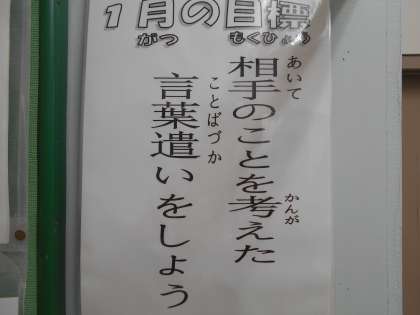 1月の目標
がつ もくひょう
相手のことを考えた
あいて かんが
言葉遣いをしよう
ことばづか